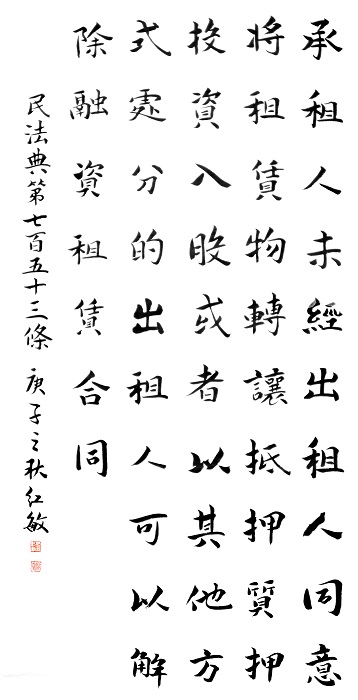 承租人未經出租人同意
將租賃物轉讓抵押質押
投資入股或者以其他方
式處分的出租人可以解
除融資租賃合同
民法典第七百五十三條 庚子之秋红敏